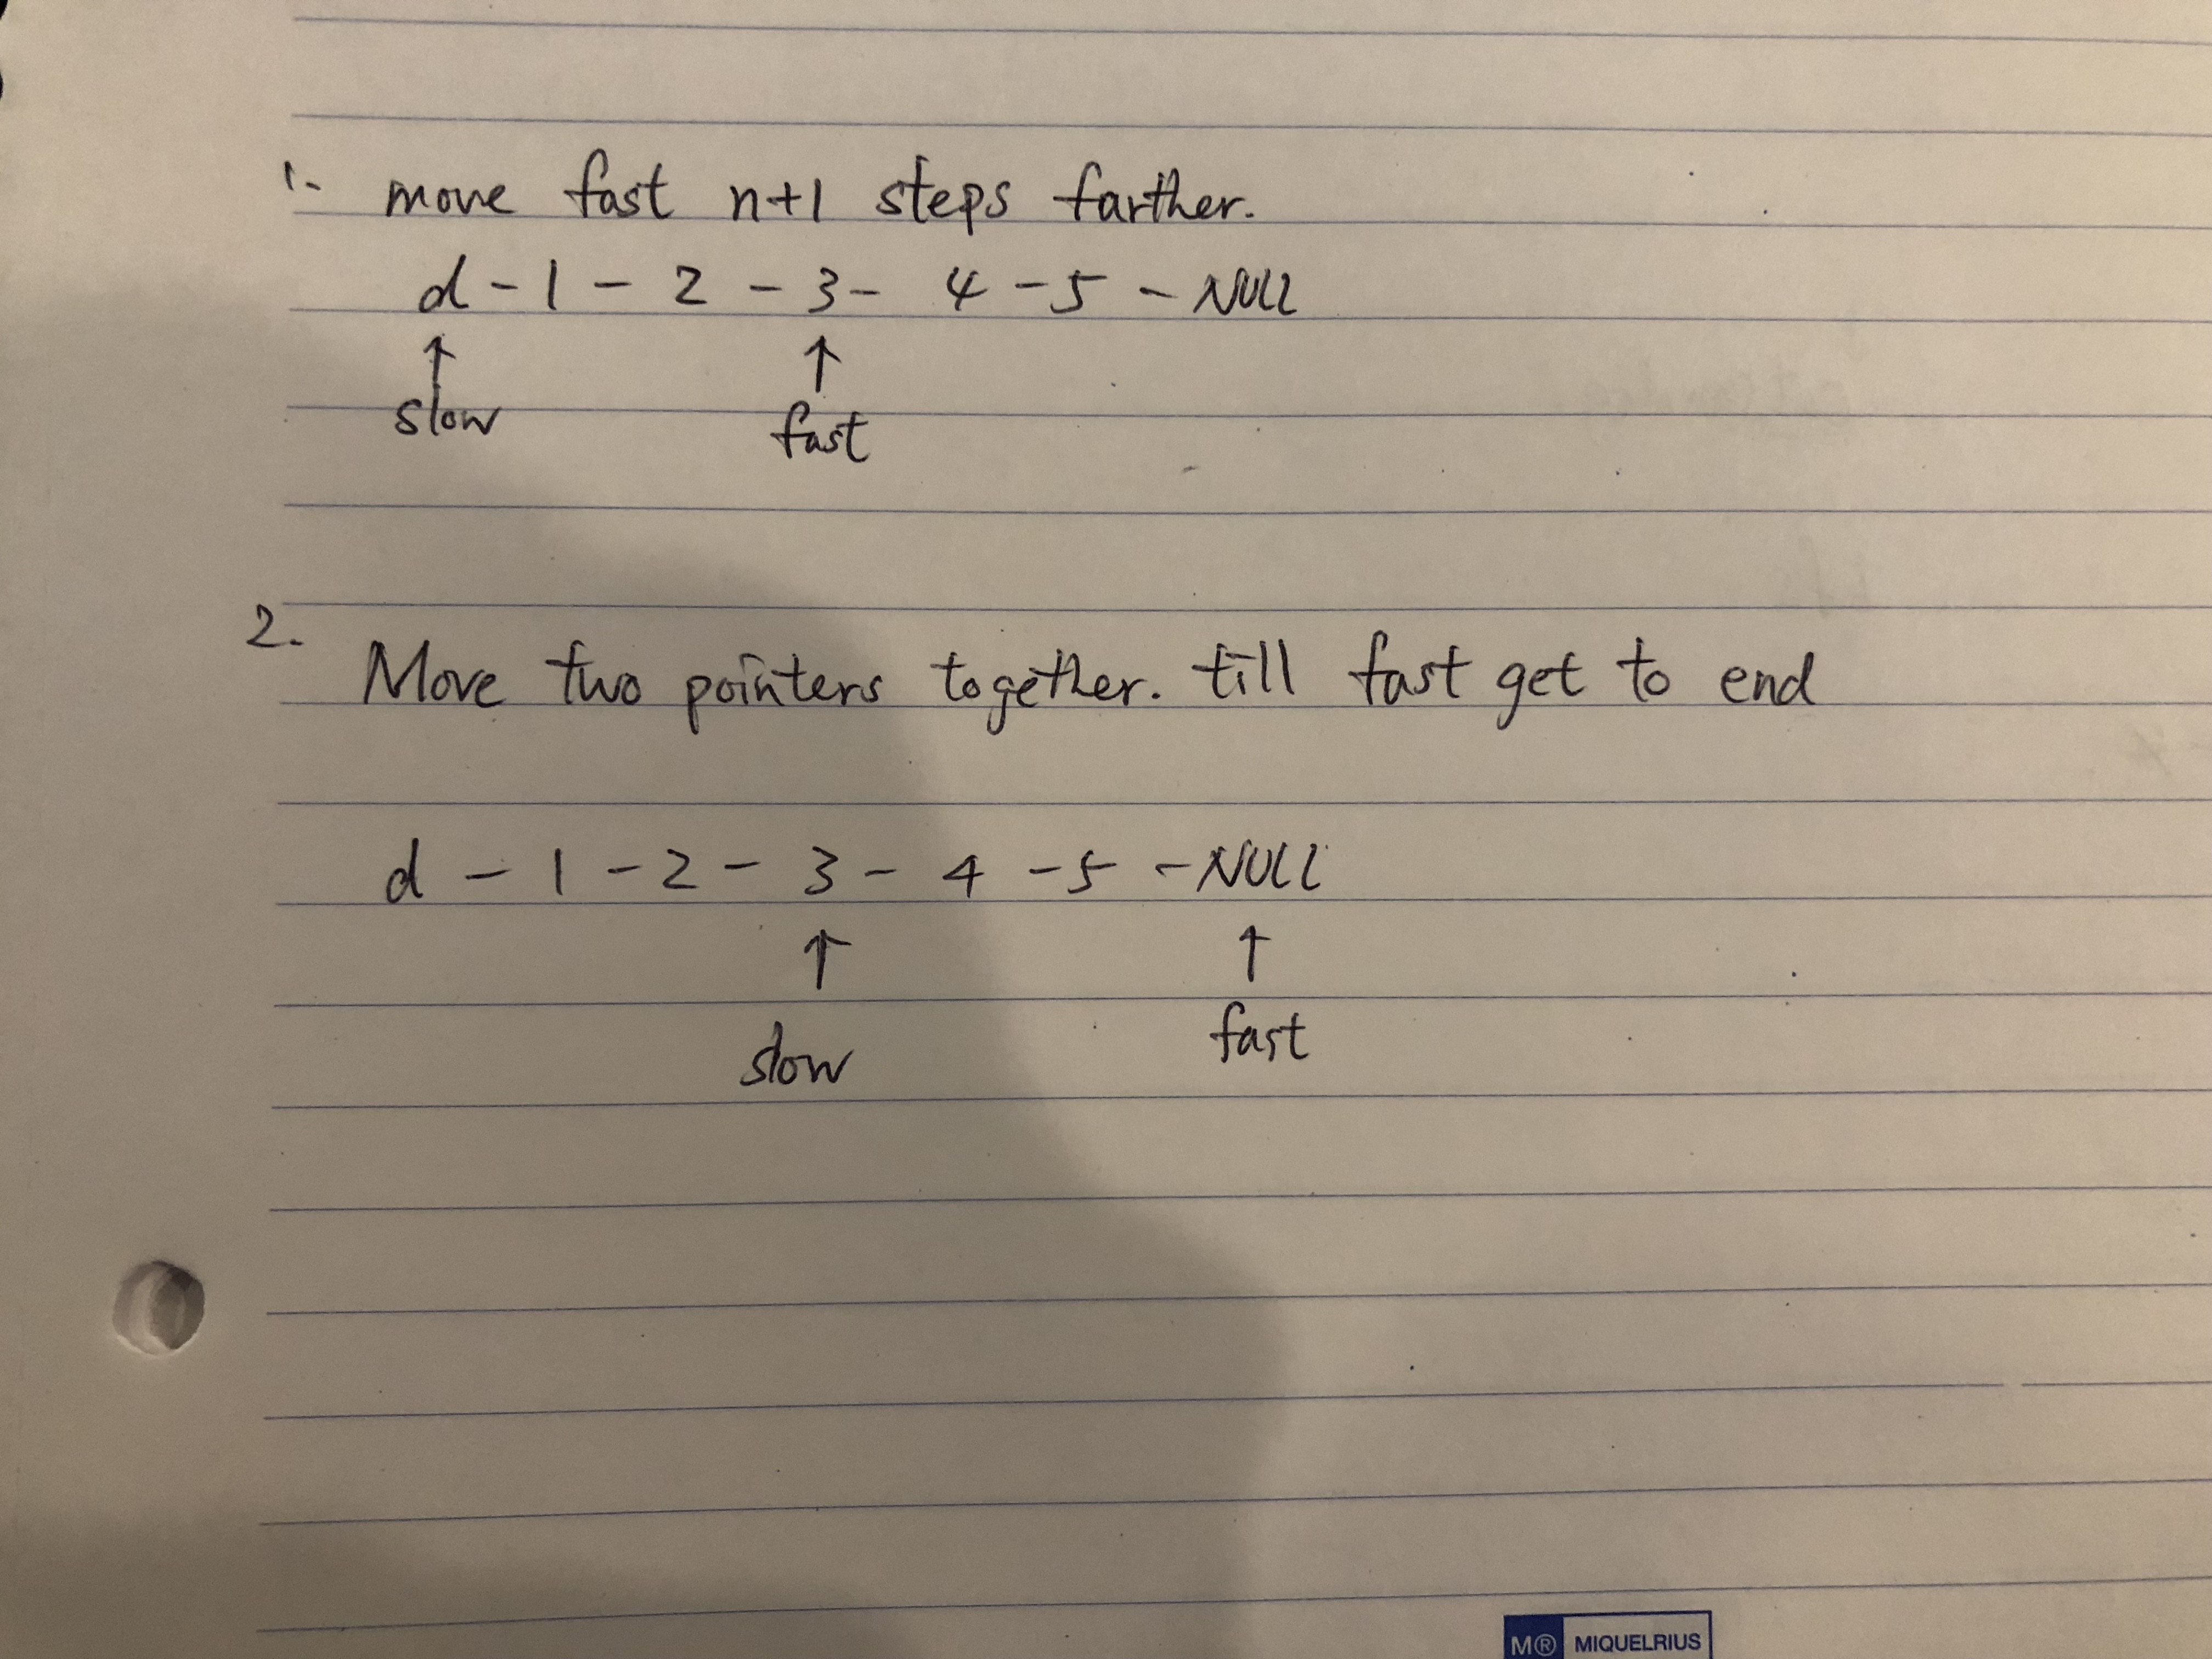 1. move fast n+1 steps farther.
d - 1 - 2 - 3 - 4 - 5 - NULL
↑ ↑
slow fast
2.
Move two pointers together. till fast get to end
d - 1 - 2 - 3 - 4 - 5 - NULL
↑ ↑
slow fast
M® MIQUELRIUS